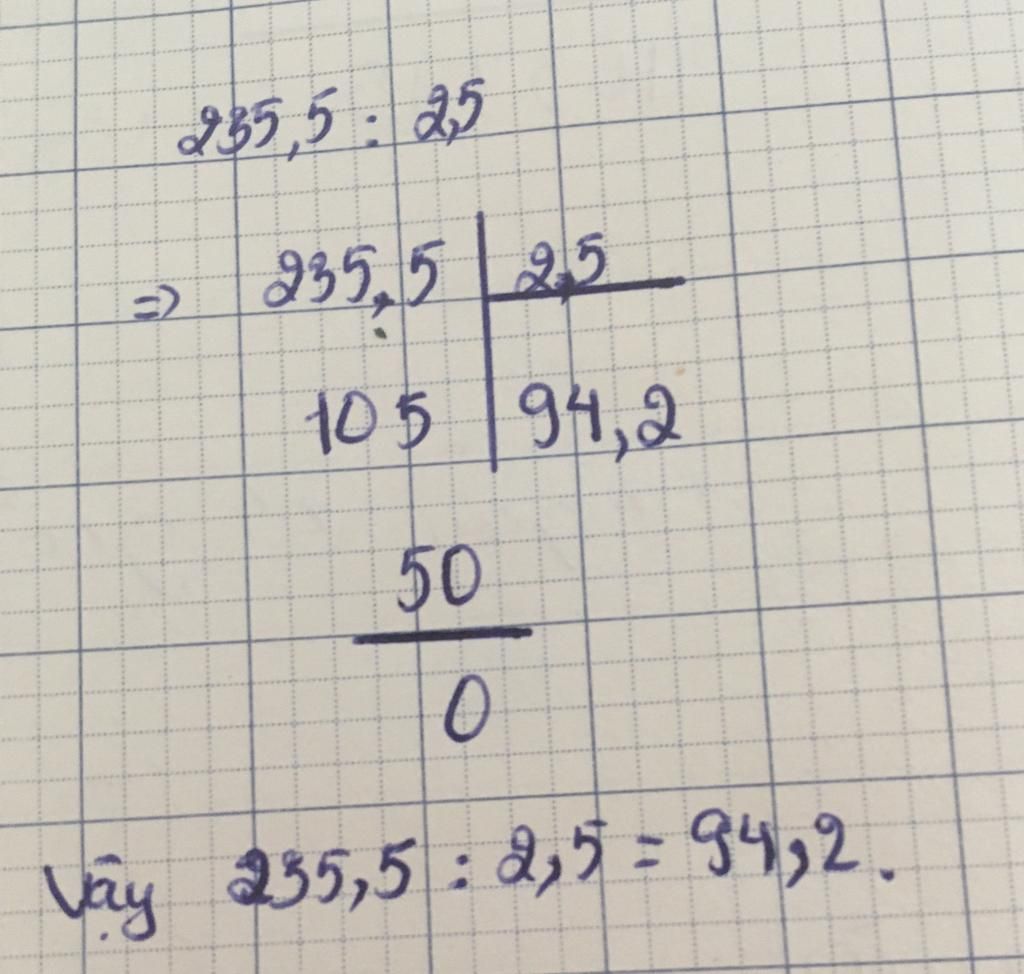 235,5 : 2,5
=> 235,5 2,5
105 94,2
50
0
Vậy 235,5 : 2,5 = 94,2.